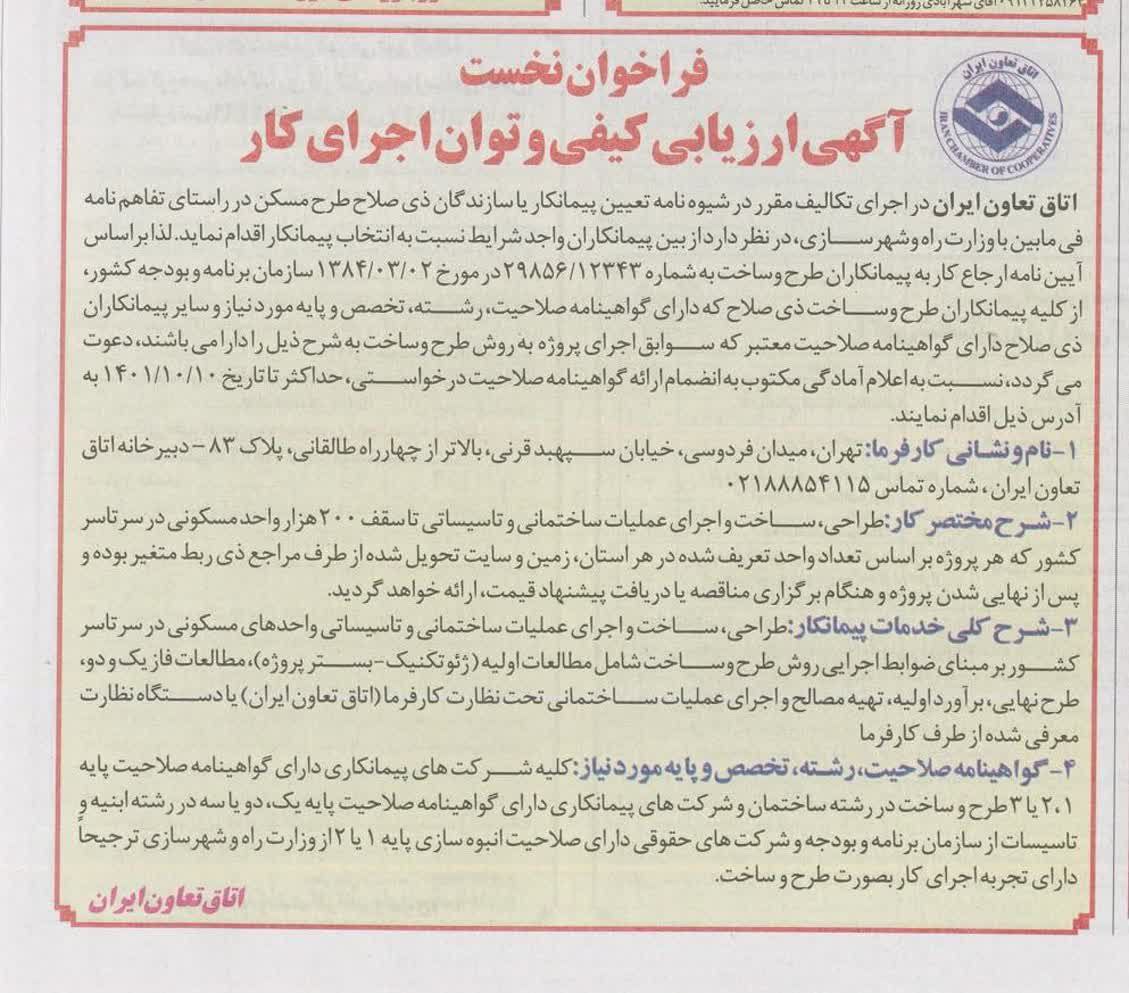 آقای شهرآبادی روزانه از ساعت
تماس حاصل فرمایید.
اتاق تعاون ایران
IRAN CHAMBER OF COOPERATIVES
فراخوان نخست
آگهی ارزیابی کیفی و توان اجرای کار
اتاق تعاون ایران در اجرای تکالیف مقرر در شیوه نامه تعیین پیمانکار یا سازندگان ذی صلاح طرح مسکن در راستای تفاهم نامه
فی مابین با وزارت راه و شهرسازی، در نظر دارد از بین پیمانکاران واجد شرایط نسبت به انتخاب پیمانکار اقدام نماید. لذا بر اساس
آیین نامه ارجاع کار به پیمانکاران طرح و ساخت به شماره ۲۹۸۵۶/۱۲۳۴۳ در مورخ ۱۳۸۴/۰۳/۰۲ سازمان برنامه و بودجه کشور،
از کلیه پیمانکاران طرح و ساخت ذی صلاح که دارای گواهینامه صلاحیت، رشته، تخصص و پایه مورد نیاز و سایر پیمانکاران
ذی صلاح دارای گواهینامه صلاحیت معتبر که سوابق اجرای پروژه به روش طرح و ساخت به شرح ذیل را دارا می باشند، دعوت
می گردد، نسبت به اعلام آمادگی مکتوب به انضمام ارائه گواهینامه صلاحیت درخواستی، حداکثر تا تاریخ ۱۴۰۱/۱۰/۱۰ به
آدرس ذیل اقدام نمایند.
۱-نام و نشانی کارفرما: تهران، میدان فردوسی، خیابان سپهبد قرنی، بالاتر از چهارراه طالقانی، پلاک ۸۳ – دبیرخانه اتاق
تعاون ایران ، شماره تماس ۰۲۱۸۸۸۵۴۱۱۵
۲-شرح مختصر کار: طراحی، ساخت و اجرای عملیات ساختمانی و تاسیساتی تا سقف ۲۰۰ هزار واحد مسکونی در سرتاسر
کشور که هر پروژه بر اساس تعداد واحد تعریف شده در هر استان، زمین و سایت تحویل شده از طرف مراجع ذی ربط متغیر بوده و
پس از نهایی شدن پروژه و هنگام برگزاری مناقصه یا دریافت پیشنهاد قیمت، ارائه خواهد گردید.
۳-شرح کلی خدمات پیمانکار: طراحی، ساخت و اجرای عملیات ساختمانی و تاسیساتی واحدهای مسکونی در سرتاسر
کشور بر مبنای ضوابط اجرایی روش طرح و ساخت شامل مطالعات اولیه (ژئوتکنیک-بستر پروژه)، مطالعات فاز یک و دو،
طرح نهایی، برآورد اولیه، تهیه مصالح و اجرای عملیات ساختمانی تحت نظارت کارفرما (اتاق تعاون ایران) یا دستگاه نظارت
معرفی شده از طرف کارفرما
۴- گواهینامه صلاحیت، رشته، تخصص و پایه مورد نیاز: کلیه شرکت های پیمانکاری دارای گواهینامه صلاحیت پایه
۲،۱ یا ۳ طرح و ساخت در رشته ساختمان و شرکت های پیمانکاری دارای گواهینامه صلاحیت پایه یک، دو یا سه در رشته ابنیه و
تاسیسات از سازمان برنامه و بودجه و شرکت های حقوقی دارای صلاحیت انبوه سازی پایه ۱ یا ۲ از وزارت راه و شهرسازی ترجیحاً
دارای تجربه اجرای کار بصورت طرح و ساخت.
اتاق تعاون ایران